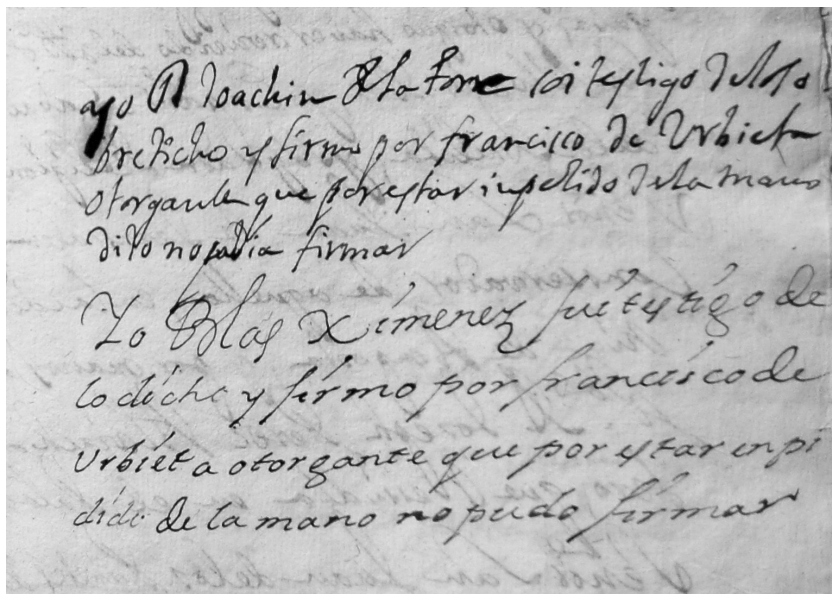 yo Joachin de la Torre soi testigo de lo so
bredicho y firmo por francisco de Urbieta
otorgante que por estar inpedido de la mano
dijo no podia firmar
Yo Blas Ximenez fui testigo de
lo dicho y firmo por francisco de
Urbieta otorgante que por estar enpi
dido de la mano no pudo firmar